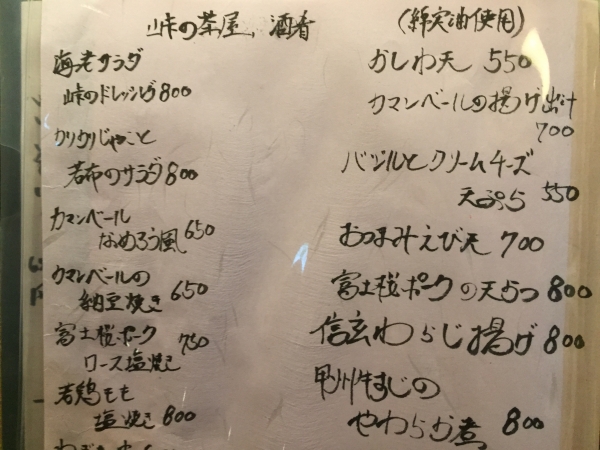 峠の茶屋、酒肴
海老サラダ
峠のドレッシング800
カリカリじゃこと
若布のサラダ800
カマンベール
なめろう風650
カマンベールの
納豆焼き650
富士桜ポーク
ロース塩焼き750
若鶏もも
塩焼き800
(綿実油使用)
かしわ天 550
カマンベールの揚げ出汁
700
バジルとクリームチーズ
天ぷら 550
おつまみえび天 700
富士桜ポークの天ぷら 800
信玄わらじ揚げ 800
甲州牛すじの
やわらか煮 800